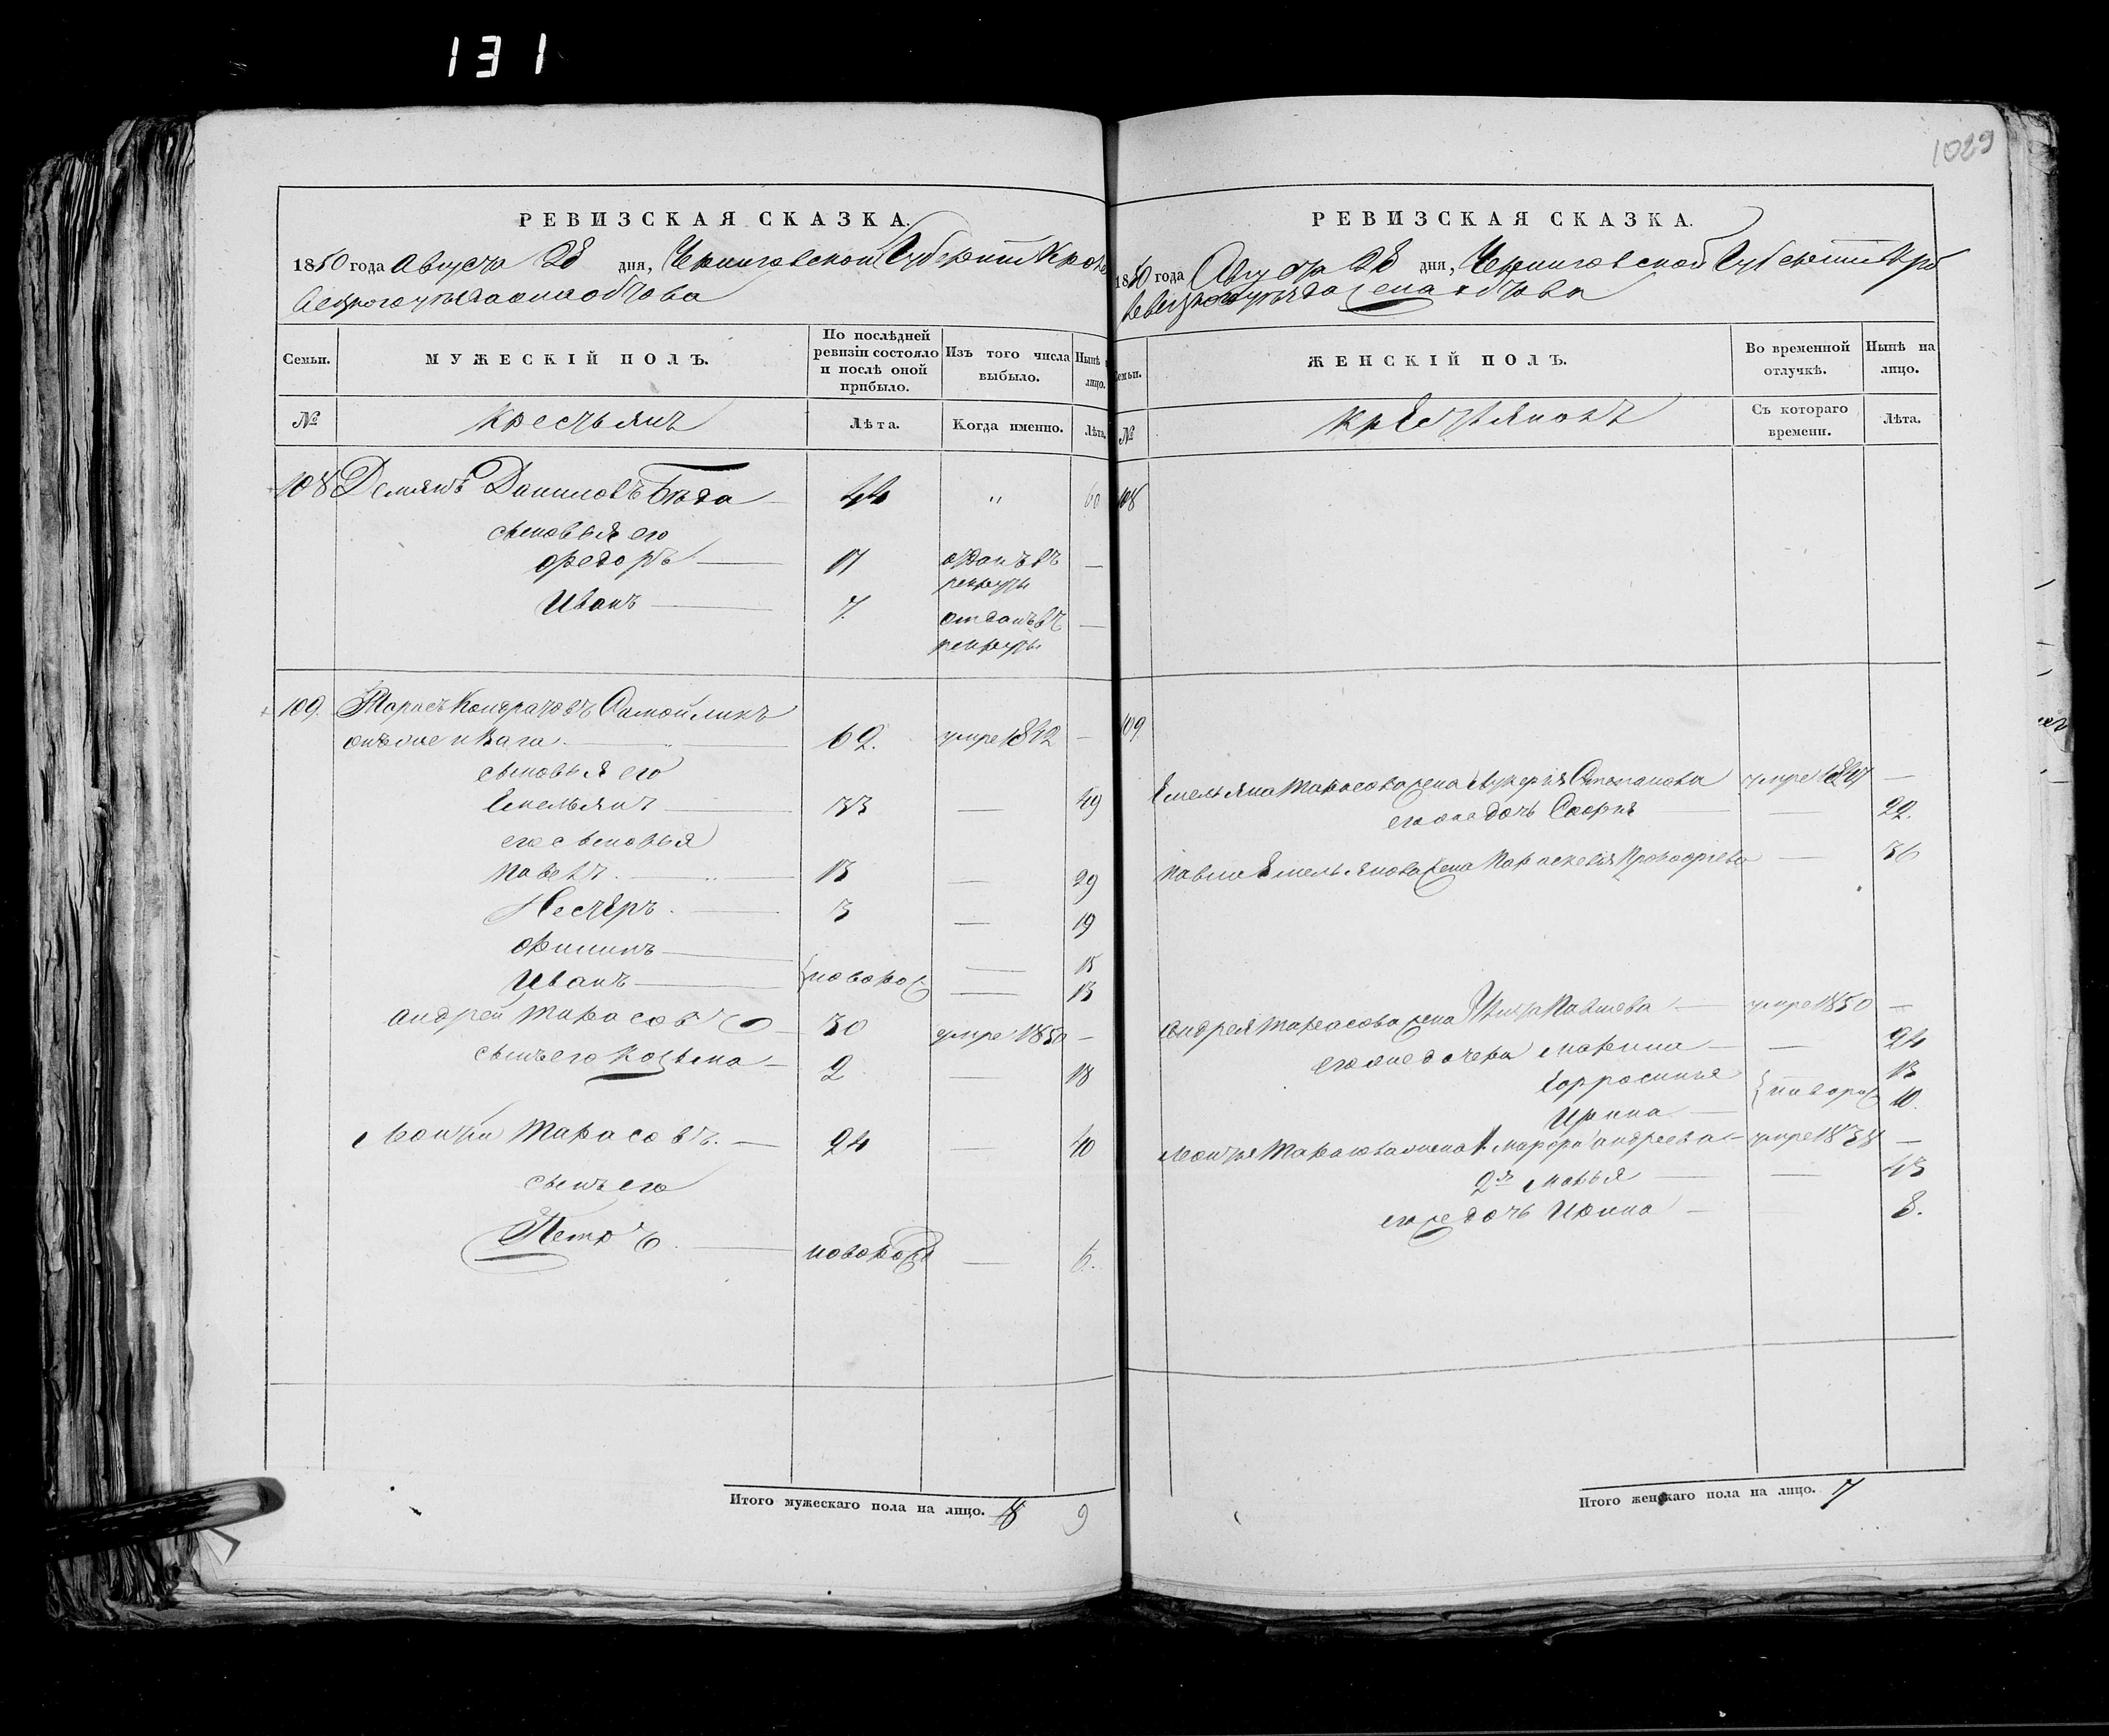 131
1029
РЕВИЗСКАЯ СКАЗКА.
1850 года Августа 28 дня, Черниговской Губернии Кроле
вецкого уезда села обтова
Семьи.
МУЖЕСКІЙ ПОЛЪ.
По послѣдней ревизіи состояло и послѣ оной прибыло.
Изъ того числа выбыло.
Нынѣ лицо.
№
крестьянъ
Лѣта.
Когда именно.
Лѣта.
108 Демянъ Даниловъ Беда 44 " 60
сыновья его
Федоръ 17 отданъ въ рекруты —
Иванъ 7. отданъ въ рекруты —
109. Тарасъ Кондратовъ Самойликъ
онъ же 62. умре 1842 —
сыновья его
Емельянъ 33 — 49
его сыновья
Павелъ 13 — 29
Несторъ 3 — 19
Филипъ — 15
Иванъ {новорож — 13
Андрей Тарасовъ 30 умре 1850 —
сынъ его Козьма 2 — 18
Леонтий Тарасовъ 24 — 40
сынъ его
Петръ новорож — 6.
Итого мужескаго пола на лицо. 8 9
РЕВИЗСКАЯ СКАЗКА.
1850 года Августа 28 дня, Черниговской Губернии Кро
левецкого уезда села обтова
Семьи.
ЖЕНСКІЙ ПОЛЪ.
Во временной отлучкѣ.
Нынѣ на лицо.
№
крестьянокъ
Съ котораго времени.
Лѣта.
108
109
Емельяна Тарасова жена Лукерия Степанова умре 1847 —
его же дочь — 22.
Павла Емельянова жена Параскевия Прокофиева — 36
Андрея Тарасова жена Павлова умре 1850 —
его же дочери Марина — 24
Ефросинья 13
Ирина {новорож 10.
Леонтия Тарасова жена 1. Марфа Андреева умре 1838 —
2я Марья — 43
его же дочь Ирина — 8.
Итого женскаго пола на лицо. 7